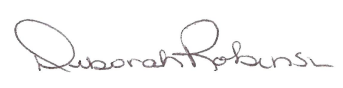 Deborah Robinson